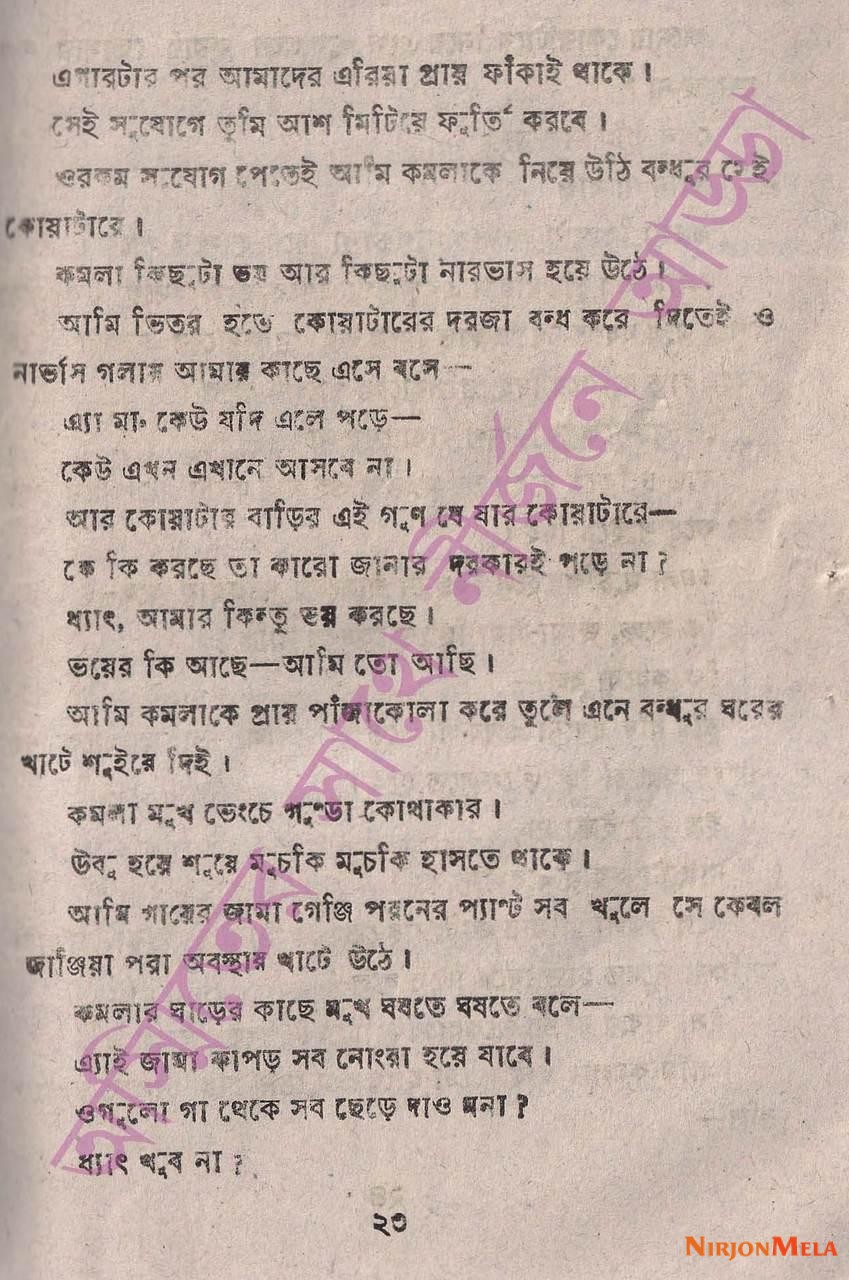 এগারটার পর আমাদের এরিয়া প্রায় ফাঁকাই থাকে।
সেই সুযোগে তুমি আশ মিটিয়ে ফুর্তি করবে।
ওরকম সুযোগ পেতেই আমি কমলাকে নিয়ে উঠি বন্ধুর সেই
কোয়াটারে।
কমলা কিছুটা ভয় আর কিছুটা নারভাস হয়ে উঠে।
আমি ভিতর হতে কোয়াটারের দরজা বন্ধ করে দিতেই ও
নার্ভাস গলায় আমার কাছে এসে বলে—
এ্যা মা, কেউ যদি এলে পড়ে—
কেউ এখন এখানে আসবে না।
আর কোয়াটার বাড়ির এই গুণ যে যার কোয়াটারে—
কে কি করছে তা কারো জানার দরকারই পড়ে না?
ধ্যাৎ, আমার কিন্তু ভয় করছে।
ভয়ের কি আছে—আমি তো আছি।
আমি কমলাকে প্রায় পাঁজাকোলা করে তুলে এনে বন্ধুর ঘরের
খাটে শুইয়ে দিই।
কমলা মুখ ভেংচে গুণ্ডা কোথাকার।
উবু হয়ে শুয়ে মুচকি মুচকি হাসতে থাকে।
আমি গায়ের জামা গেঞ্জি পরনের প্যাণ্ট সব খুলে সে কেবল
জাঙ্গিয়া পরা অবস্থায় খাটে উঠে।
কমলার ঘাড়ের কাছে মুখ ঘষতে ঘষতে বলে—
এ্যাই জামা কাপড় সব নোংরা হয়ে যাবে।
ওগুলো গা থেকে সব ছেড়ে দাও মনা?
ধ্যাৎ খুব না?
২৩
আসিতেছে সাথে নির্জনে আড্ডা
NIRJONMELA